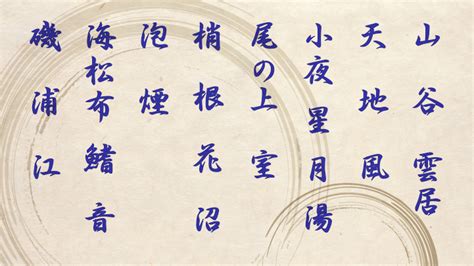 山 谷 雲居
天 地 風
小夜 星 月 湯
尾の上 室
梢 根 花 沼
泡 煙
海松布 鰭 音
磯 浦 江